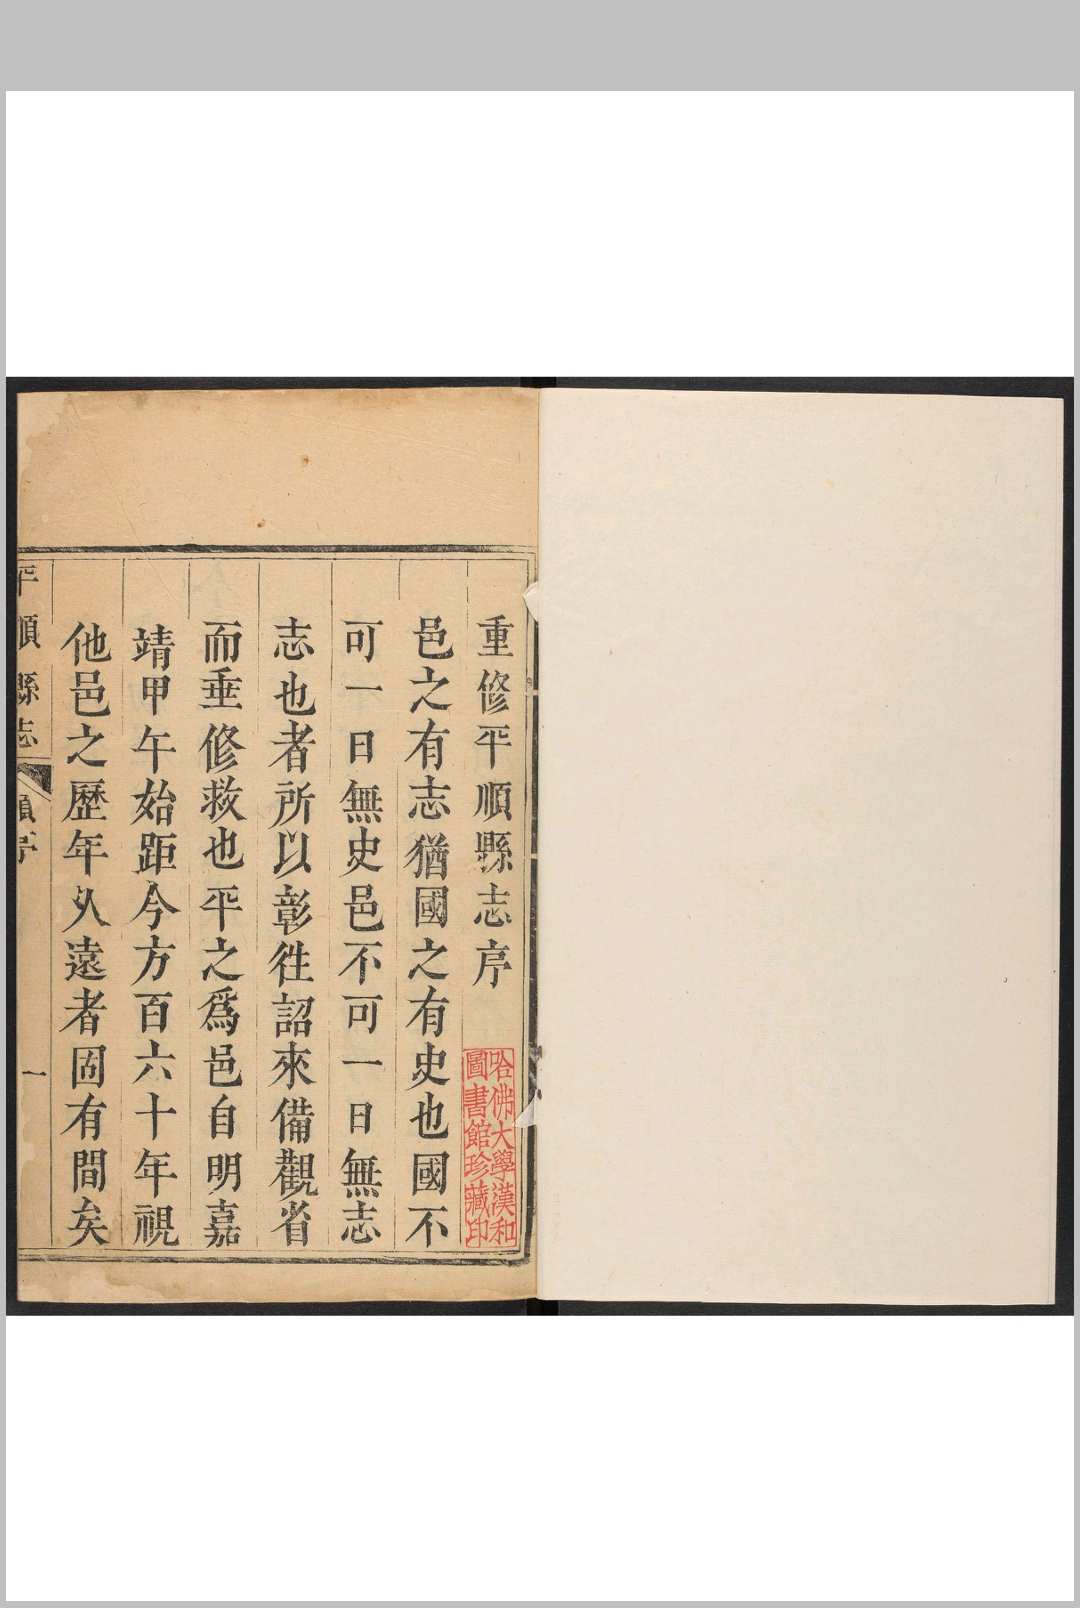 重修平順縣志序
邑之有志猶國之有史也國不
可一日無史邑不可一日無志
志也者所以彰徃詔來備觀省
而垂修救也平之爲邑自明嘉
靖甲午始距今方百六十年視
他邑之歷年乆遠者固有間矣
平順縣志
序
一
哈佛大學漢和
圖書館珍藏印